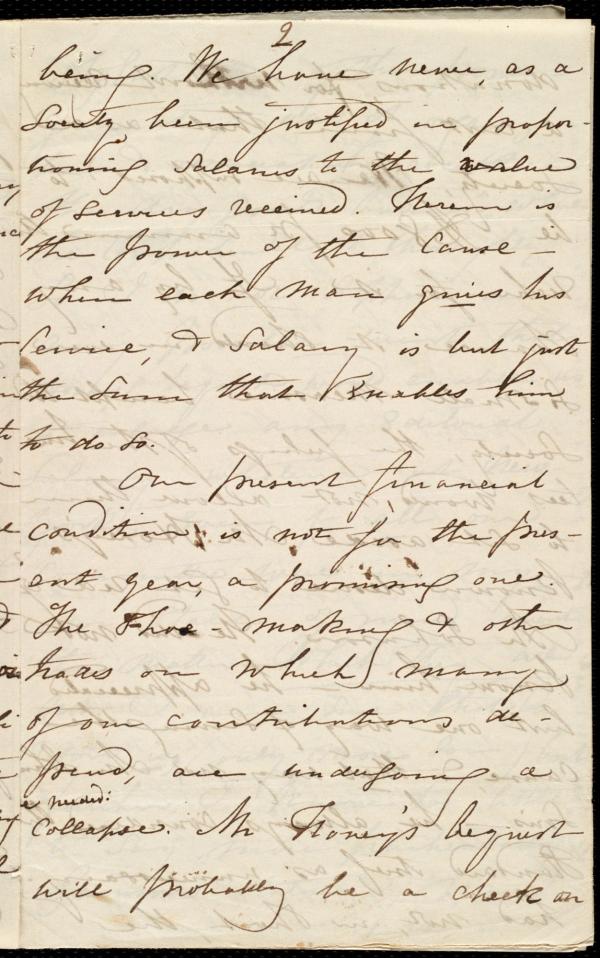 2
being. We have never, as a
Society, been justified in propor-
tioning Salaries to the value
of services received. Herein is
the power of the Cause –
when each man gives his
Service, & Salary is but just
the sum that enables him
to do so.
Our present financial
condition, is not for the pres-
ent year, a promising one.
The Shoe-making & other
trades on which many
of our contributions de-
pend, are undergoing a
needed:
collapse. Mr Hovey's bequest
will probably be a check on